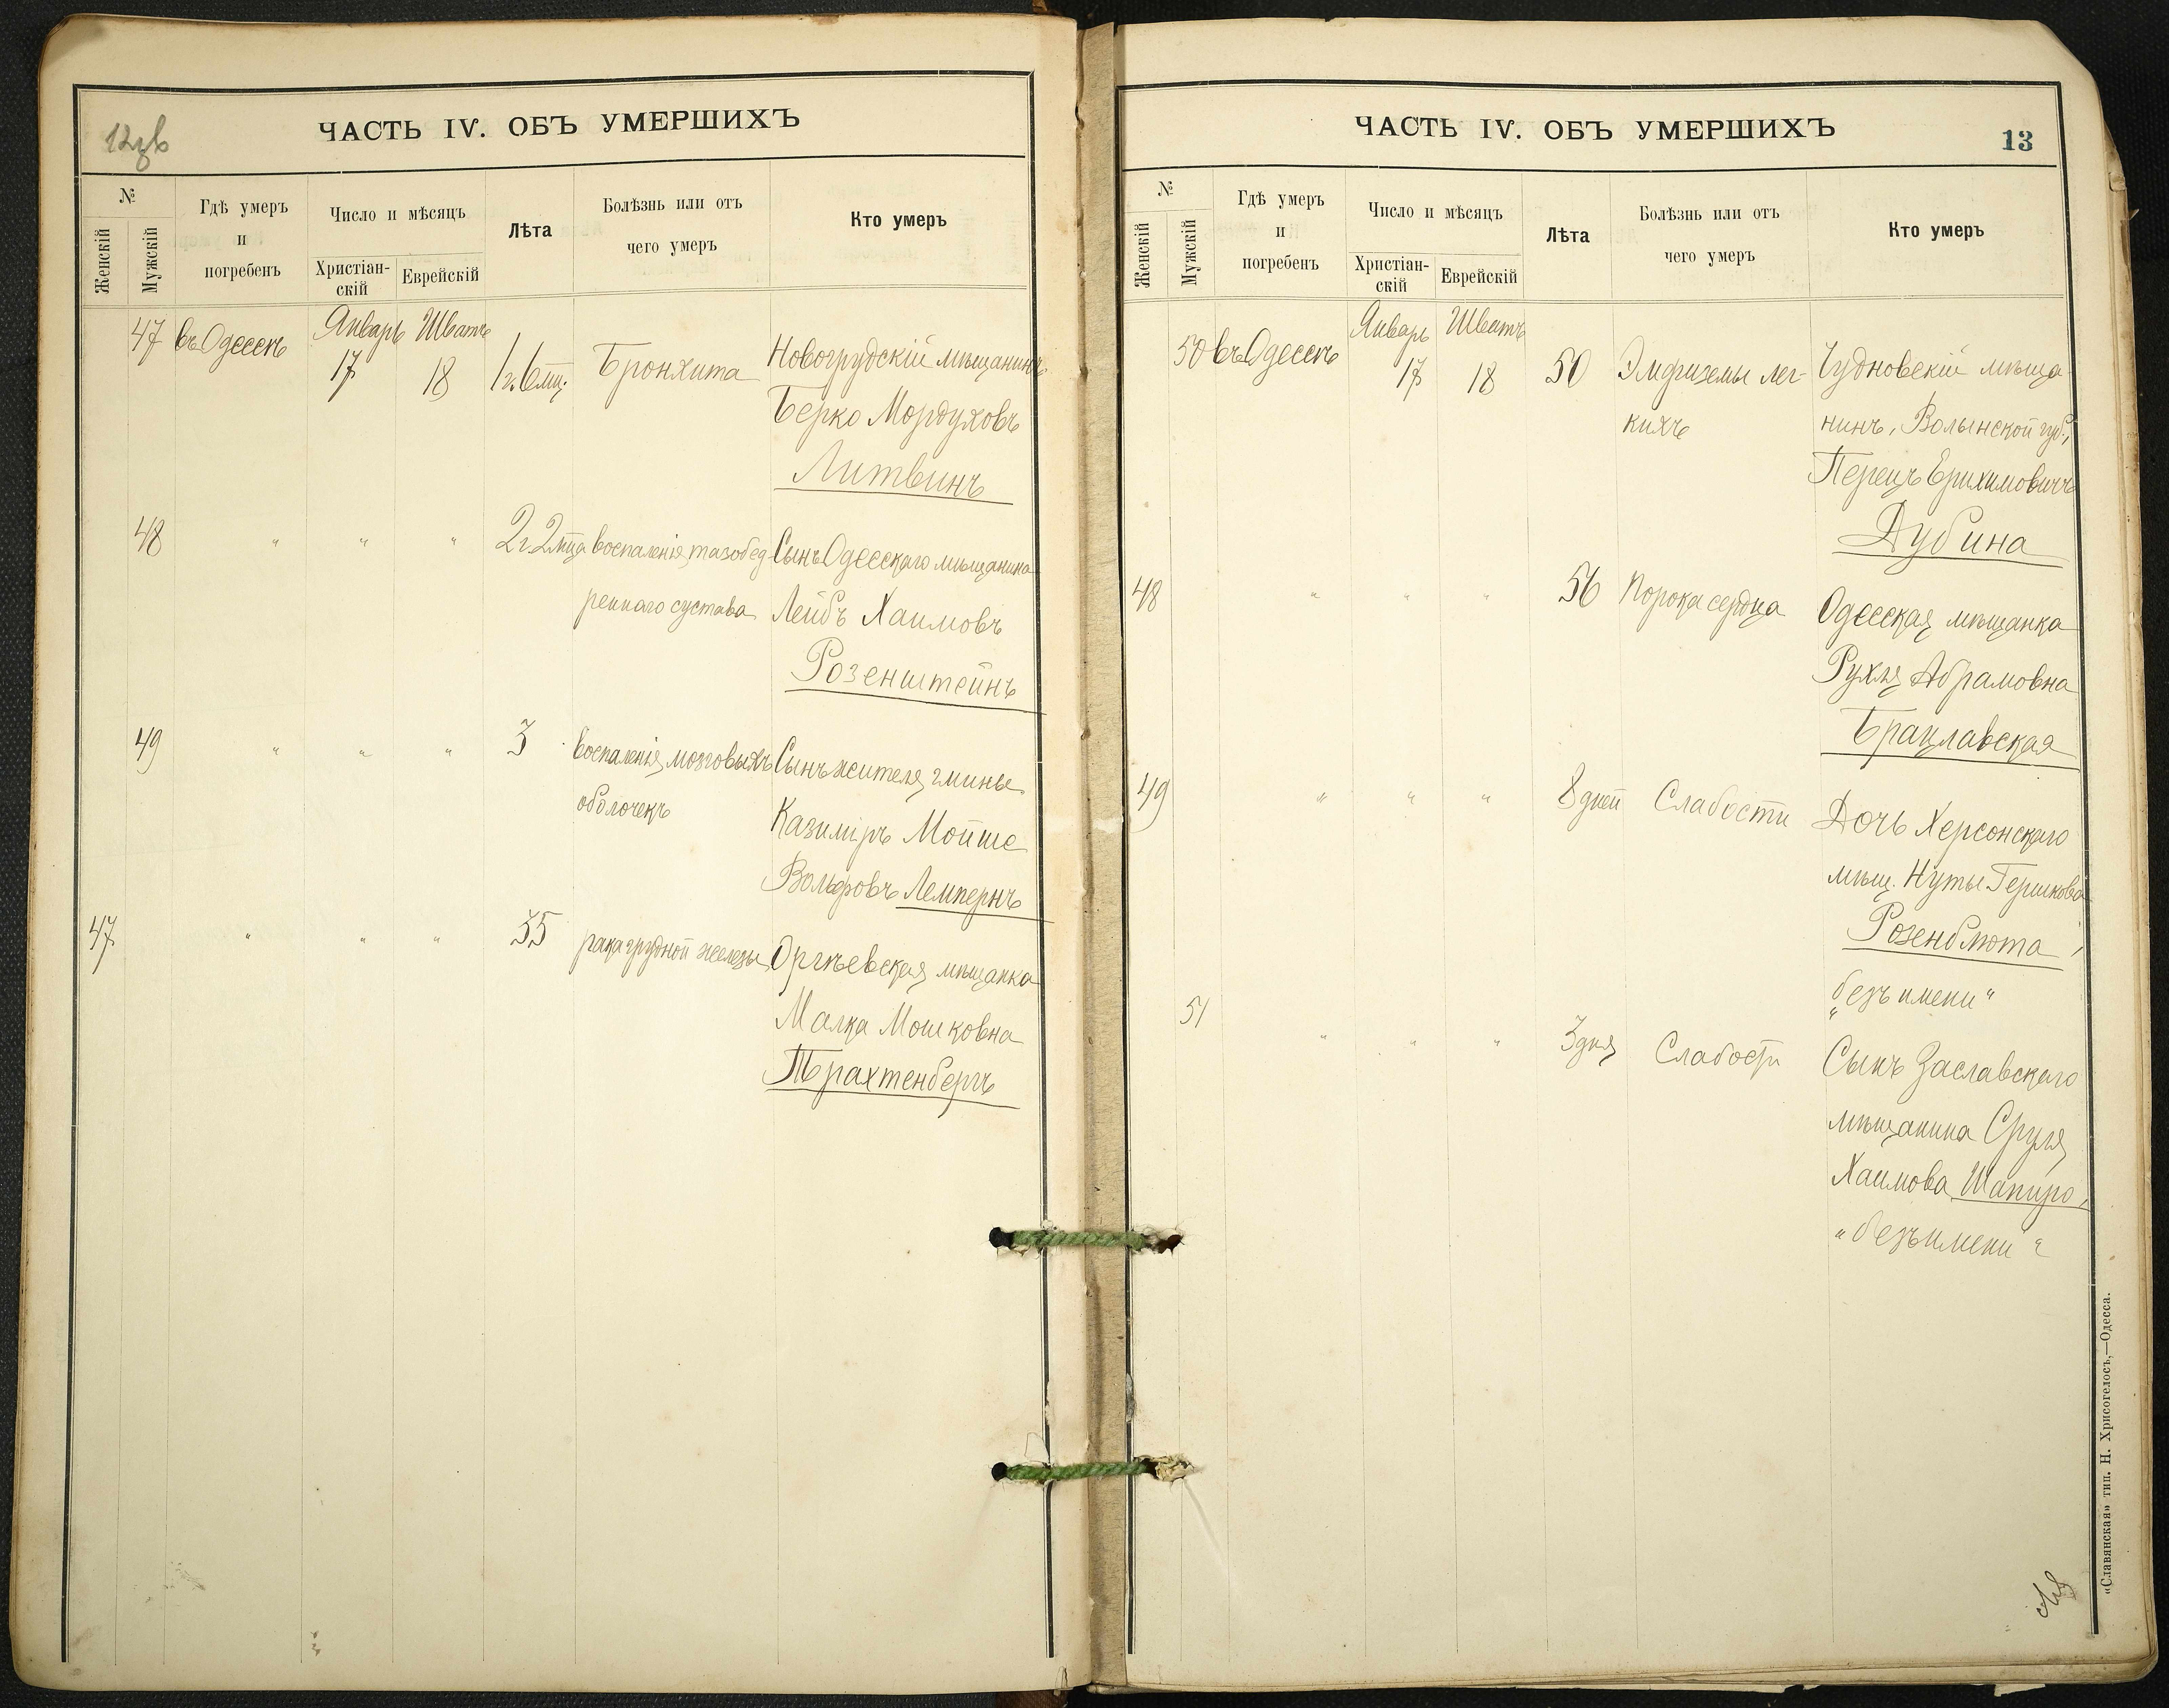 12об
ЧАСТЬ IV. ОБЪ УМЕРШИХЪ
№
Женскій
Мужскій
Гдѣ умеръ
и
погребенъ
Число и мѣсяцъ
Христіан-
скій
Еврейскій
Лѣта
Болѣзнь или отъ
чего умеръ
Кто умеръ
47 въ Одессѣ Январь 17 Шватъ 18 1 г. 6 мц. Бронхита Новогрудскій мѣщанинъ
Берко Мордуховъ
Литвинъ
48 " " " 2 г. 2 мца воспаленія тазобед- Сынъ Одесскаго мѣщанина
реннаго сустава Лейбъ Хаимовъ
Розенштейнъ
49 " " " 3 воспаленія мозговыхъ Сынъ жителя гмины
оболочекъ Казимiръ Мойше
Вольфовъ Лемпернъ
47 " " " 35 рака грудной железы Оргѣевская мѣщанка
Малка Мошковна
Трахтенбергъ
ЧАСТЬ IV. ОБЪ УМЕРШИХЪ
13
№
Женскій
Мужскій
Гдѣ умеръ
и
погребенъ
Число и мѣсяцъ
Христіан-
скій
Еврейскій
Лѣта
Болѣзнь или отъ
чего умеръ
Кто умеръ
50 въ Одессѣ Январь 17 Шватъ 18 50 Эмфиземы лег- Чудновскій мѣща
кихъ нинъ, Волынской губ.,
Перецъ Ерихимовичъ
Дубина
48 " " " 56 Порока сердца Одесская мѣщанка
Рухля Абрамовна
Брацлавская
49 " " " 8 дней Слабости Дочь Херсонскаго
мѣщ. Нуты Гершкова
Розенблюта,
"безъ имени"
51 " " " 3 дня Слабости Сынъ Заславскаго
мѣщанина Сруля
Хаимова Шапиро,
"безъ имени"
«Славянская» тип. Н. Хрисогелосъ,—Одесса.